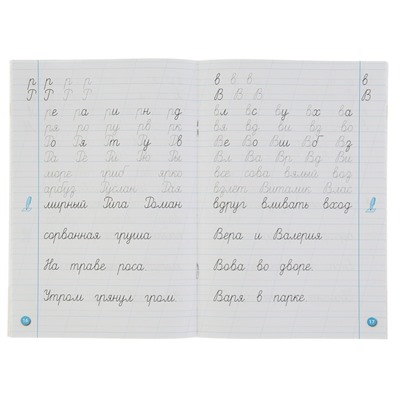 р р р р
Р Р Р Р
ре ра ри рн рд
ря ро ру рв рк
Ро Ря Рт Ру Рв
Ра Ро Ри Рю Ри
море гриб ярко
арбуз Руслан Рая
мирный Рига Роман
сорванная груша
На траве роса.
Утром грянул гром.
16
в в в в
В В В В
вл вс ву вх ва
вя вд ви вд во
Ве Во Вш Вб Вз
Вл Ва Вп Вд Ви
все сова вялый вод
взлёт Виталик Влас
вдруг вливать вход
Вера и Валерия.
Вова во дворе.
Варя в парке.
17